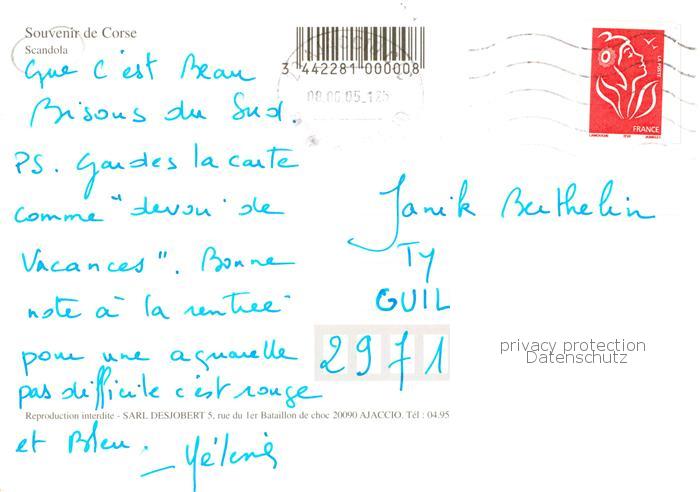 Souvenir de Corse
Scandola
3 442281 000008
08.06.05
LA POSTE
FRANCE
Que c'est Beau
Bisous du Sud.
PS. Gardes la carte
comme "devoir de
Vacances". Bonne
note à la rentrée
pour une aquarelle
pas difficile c'est rouge
et Bleu.
Janik Berthelin
TY
GUIL
2971
privacy protection
Datenschutz
Reproduction interdite - SARL DESJOBERT 5, rue du 1er Bataillon de choc 20090 AJACCIO. Tél : 04.95